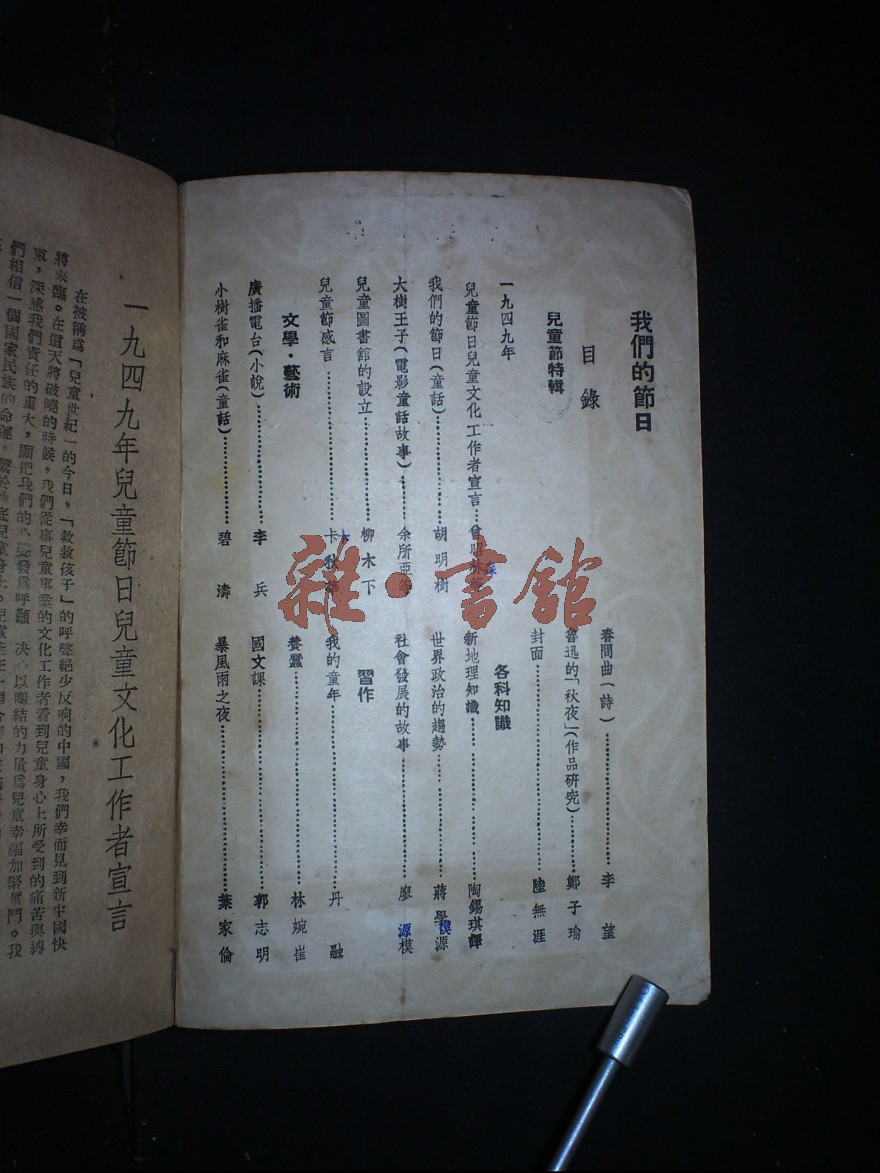 我們的節日
目錄
兒童節特輯
一九四九年
兒童節日兒童文化工作者宣言…曾昭林
森
我們的節日(童話)…………胡明樹
大樹王子(電影童話故事)……余所亞等
兒童圖書館的設立…………柳木下
兒童節感言…………卡秋
文學・藝術
廣播電台(小說)…………李兵
小樹雀和麻雀(童話)…………碧濤
春間曲(詩)…………李望
魯迅的「秋夜」(作品研究)……鄭子瑜
封面…………陸無涯
各科知識
新地理知識…………陶錫琪譯
世界政治的趨勢…………蔣學模源
社會發展的故事…………廖源模
習作
我的童年…………丹融
養蠶…………林婉崔
國文課…………郭志明
暴風雨之夜…………葉家倫
一九四九年兒童節日兒童文化工作者宣言
在被稱爲「兒童世紀」的今日,「救救孩子」的呼聲絕少反响的中國,我們幸而見到新中國快
將來臨。在這天將破曉的時候,我們從事兒童事業的文化工作者看到兒童身心上所受到的痛苦與縛
束,深感我們責任的重大,願把我們的心聲發爲呼籲,決心以團結的力量爲兒童幸福加緊奮鬥。我
們相信一個國家民族的命運,
雜・書館